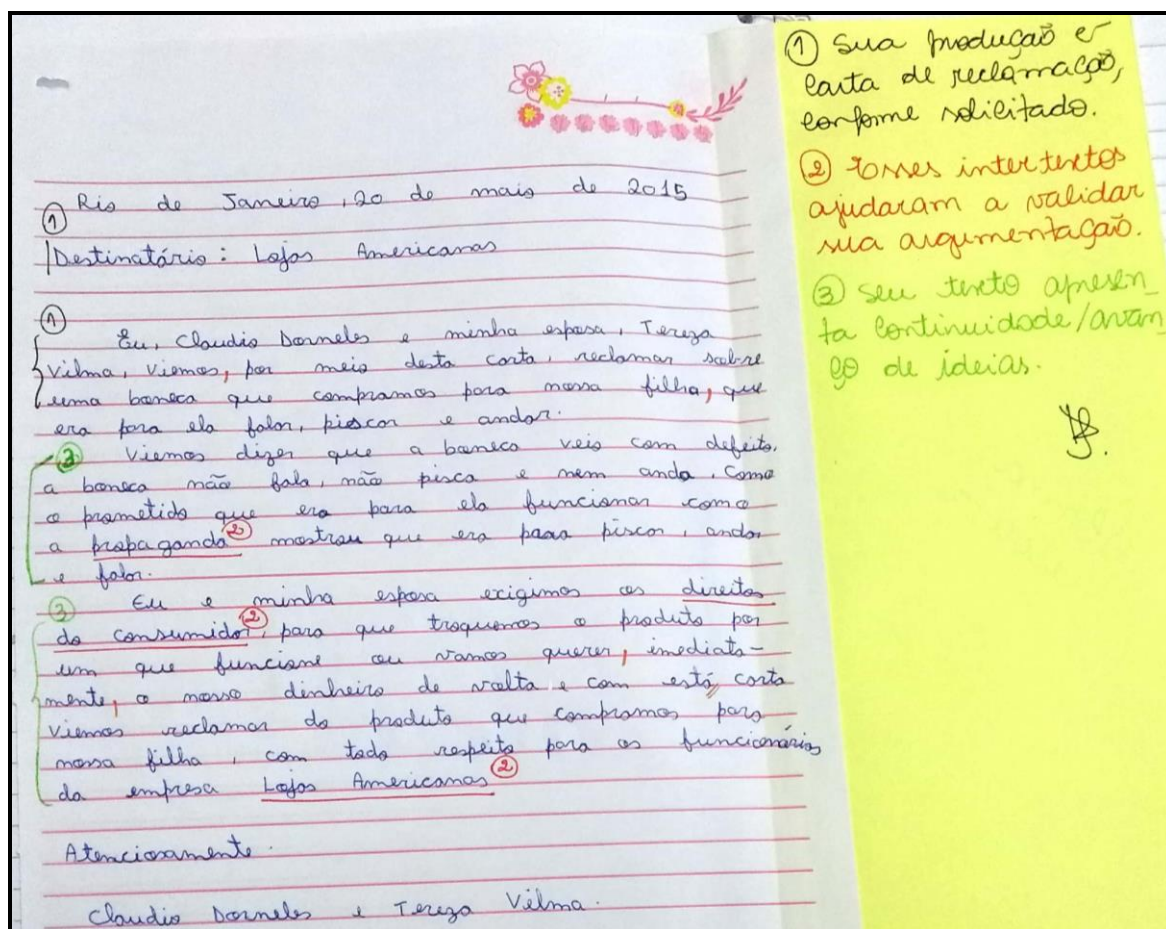 Rio de Janeiro, 20 de maio de 2015
①
Destinatário: Lojas Americanas
①
Eu, Claudio Dorneles e minha esposa, Tereza
Vilma, viemos, por meio desta carta, reclamar sobre
uma boneca que compramos para nossa filha, que
era para ela falar, piscar e andar.
③ Viemos dizer que a boneca veio com defeito,
a boneca não fala, não pisca e nem anda. Como
o prometido que era para ela funcionar como
a propaganda ② mostrou que era para piscar, andar
e falar.
③ Eu e minha esposa exigimos os direitos
do consumidor ②, para que troquemos o produto por
um que funcione ou vamos querer, imediata-
mente, o nosso dinheiro de volta e com está carta
viemos reclamar do produto que compramos para
nossa filha, com todo respeito para os funcionários
da empresa Lojas Americanas ②
Atenciosamente.
Claudio Dorneles e Tereza Vilma.
① Sua produção é
carta de reclamação,
conforme solicitado.
② Esses intertextos
ajudaram a validar
sua argumentação.
③ Seu texto apresen_
ta continuidade/avan
ço de ideias.